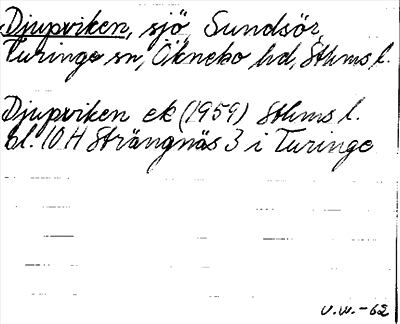 Djupviken, sjö, Sundsör,
Turinge sn, Öknebo hd, Sthms l.
Djupviken ek (1959) Sthms l.
bl. 10 H Strängnäs 3 i Turinge
V.W.-62